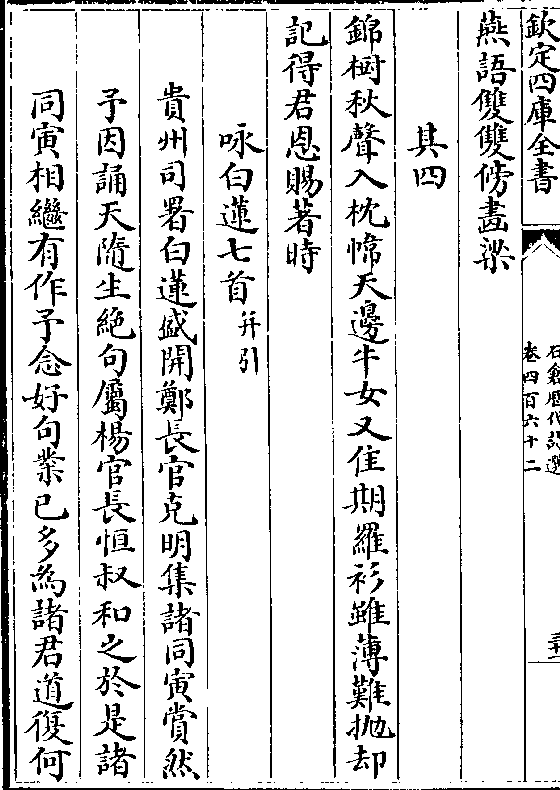 欽定四庫全書
石倉歷代詩選
卷四百六十二
燕語雙雙傍畫梁
其四
錦樹秋聲入枕幃天邊牛女又佳期羅衫雖薄難抛却
記得君恩賜著時
咏白蓮七首并引
貴州司署白蓮盛開鄭長官克明集諸同寅賞然
予因誦天隨生絶句屬楊官長恒叔和之於是諸
同寅相繼有作予念好句業已多為諸君道復何